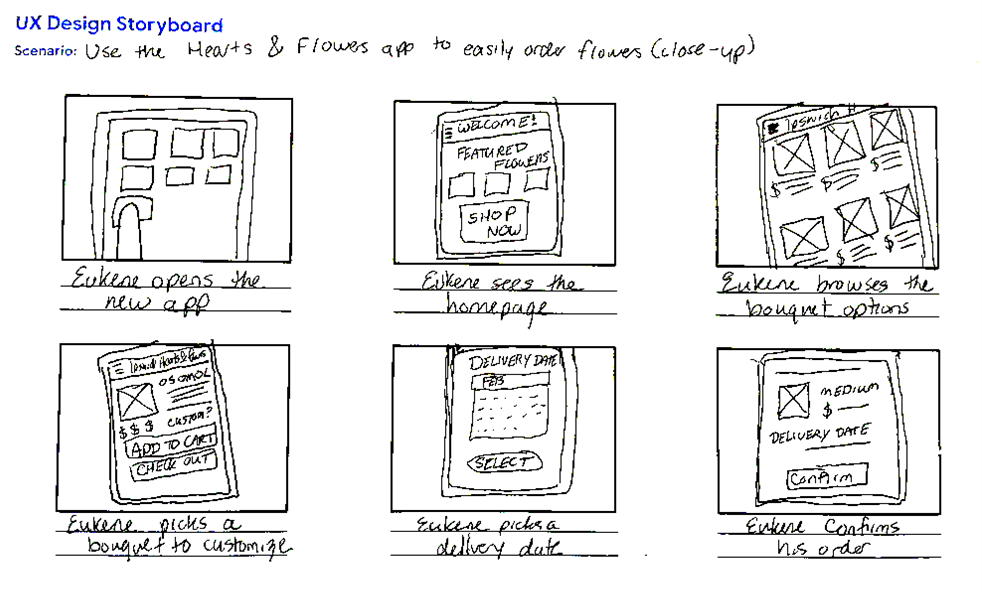 UX Design Storyboard
Scenario: Use the Hearts & Flowers app to easily order flowers (close-up)
WELCOME!
FEATURED
FLOWERS
SHOP
NOW
Ipswich H
$ $ $
$ $
Eukene opens the
new app
Eukene sees the
homepage
Eukene browses the
bouquet options
Hearts &
$ $ $ CUSTOM?
ADD TO CART
CHECK OUT
DELIVERY DATE
FEB
SELECT
MEDIUM
$
DELIVERY DATE
Confirm
Eukene picks a
bouquet to customize
Eukene picks a
delivery date
Eukene Confirms
his order